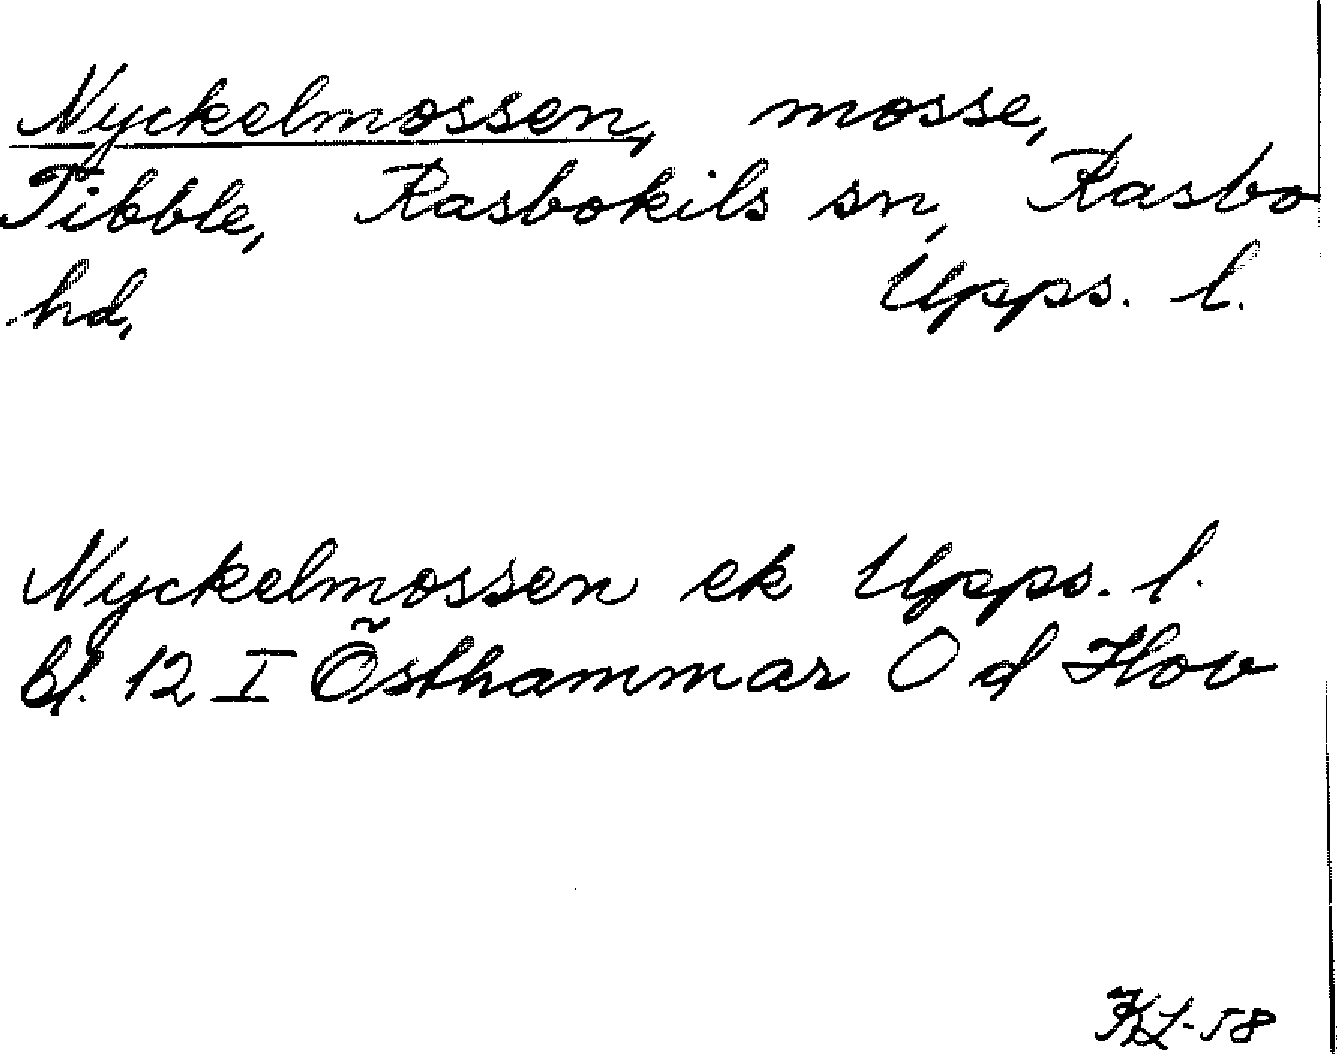 Nyckelmossen, mosse,
Tibble, Rasbokils sn, Rasbo
hd, Upps. l.
Nyckelmossen ek Upps. l.
bl. 12 I Östhammar O d Hov
KL-58